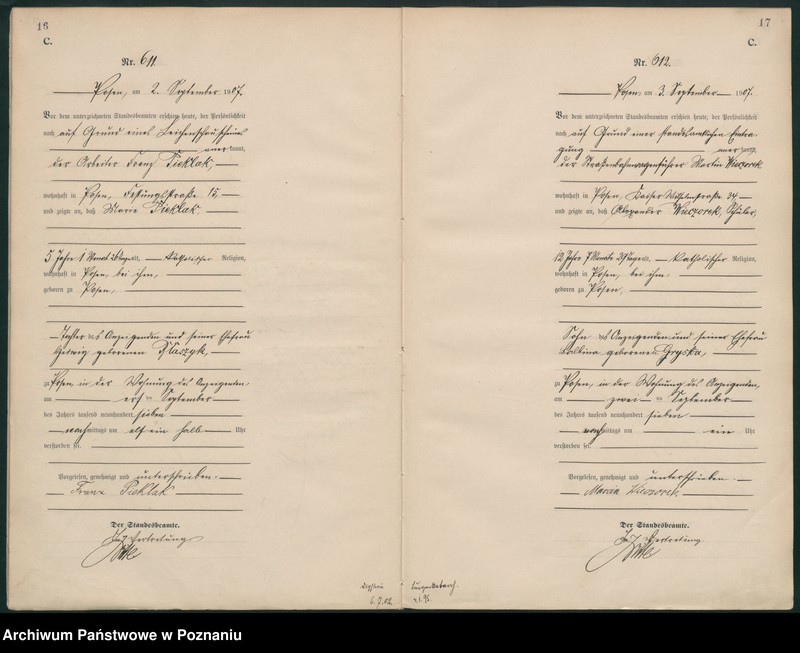 16
C.
Nr. 611.
Posen, am 2. September 1907.
Vor dem unterzeichneten Standesbeamten erschien heute, der Persönlichkeit
nach auf Grund eines Leichenschauscheines
anerkannt,
der Arbeiter Franz Pieklak,
wohnhaft in Posen, Festungsstraße 15,
und zeigte an, daß Marie Pieklak,
5 Jahre 1 Monat alt, katholischer Religion,
wohnhaft in Posen, bei ihm,
geboren zu Posen,
Tochter des Anzeigenden und seiner Ehefrau
Hedwig geborenen
zu Posen, in der Wohnung des Anzeigenden,
am ersten September
des Jahres tausend neunhundert sieben
nachmittags um elf ein halb Uhr
verstorben sei.
Vorgelesen, genehmigt und unterschrieben.
Franz Pieklak
Der Standesbeamte.
In Vertretung
6.7.02.
17
C.
Nr. 612.
Posen, am 3. September 1907.
Vor dem unterzeichneten Standesbeamten erschien heute, der Persönlichkeit
nach auf Grund einer standesamtlichen Eintra-
gung anerkannt,
der Straßenbahnwagenführer Martin Wieczorek
wohnhaft in Posen, Kaiser Wilhelmstraße 34,
und zeigte an, daß Alexander Wieczorek, Schüler,
12 Jahre 7 Monate alt, katholischer Religion,
wohnhaft in Posen, bei ihm,
geboren zu Posen,
Sohn des Anzeigenden und seiner Ehefrau
Balbina geborenen Gryska,
zu Posen, in der Wohnung des Anzeigenden,
am zweiten September
des Jahres tausend neunhundert sieben
nachmittags um ein Uhr
verstorben sei.
Vorgelesen, genehmigt und unterschrieben.
Marcin Wieczorek
Der Standesbeamte.
In Vertretung
Archiwum Państwowe w Poznaniu